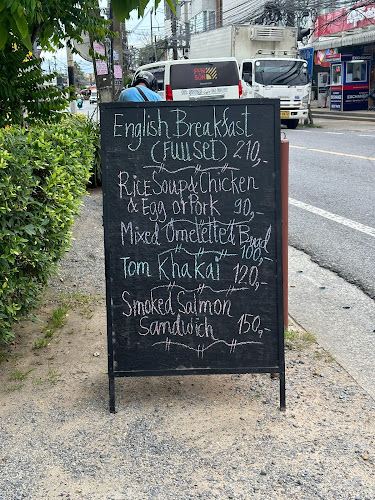 English Breakfast
(Full Set) 210,-
Rice Soup & Chicken
& Egg or Pork 90,-
Mixed Omelette & Bread
100,-
Tom Kha Kai 120,-
Smoked Salmon
Samdwich 150,-